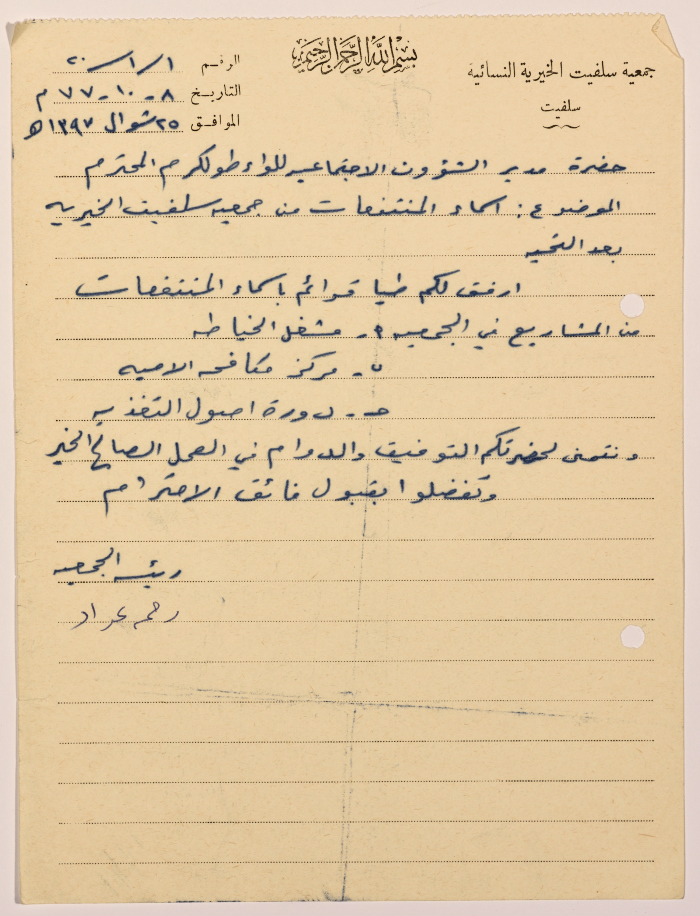 بسم الله الرحمن الرحيم
جمعية سلفيت الخيرية النسائية
سلفيت
الرقم ١/١/٢٠
التاريخ ٨-١٠-٧٧ م
الموافق ٢٥ شوال ١٣٩٧ هـ
حضرة مدير الشؤون الاجتماعيه للواء طولكرم المحترم
الموضوع: اسماء المنتفعات من جمعيه سلفيت الخيريه
بعد التحيه
ارفق لكم طيا قوائم باسماء المنتفعات
من المشاريع في الجمعيه ٩- مشغل الخياطه
ب- مركز مكافحه الاميه
حـ- دورة اصول التغذيه
ونتمنى لحضرتكم التوفيق والدوام في العمل الصالح الخير
وتفضلوا بقبول فائق الاحترام
رئيسه الجمعيه